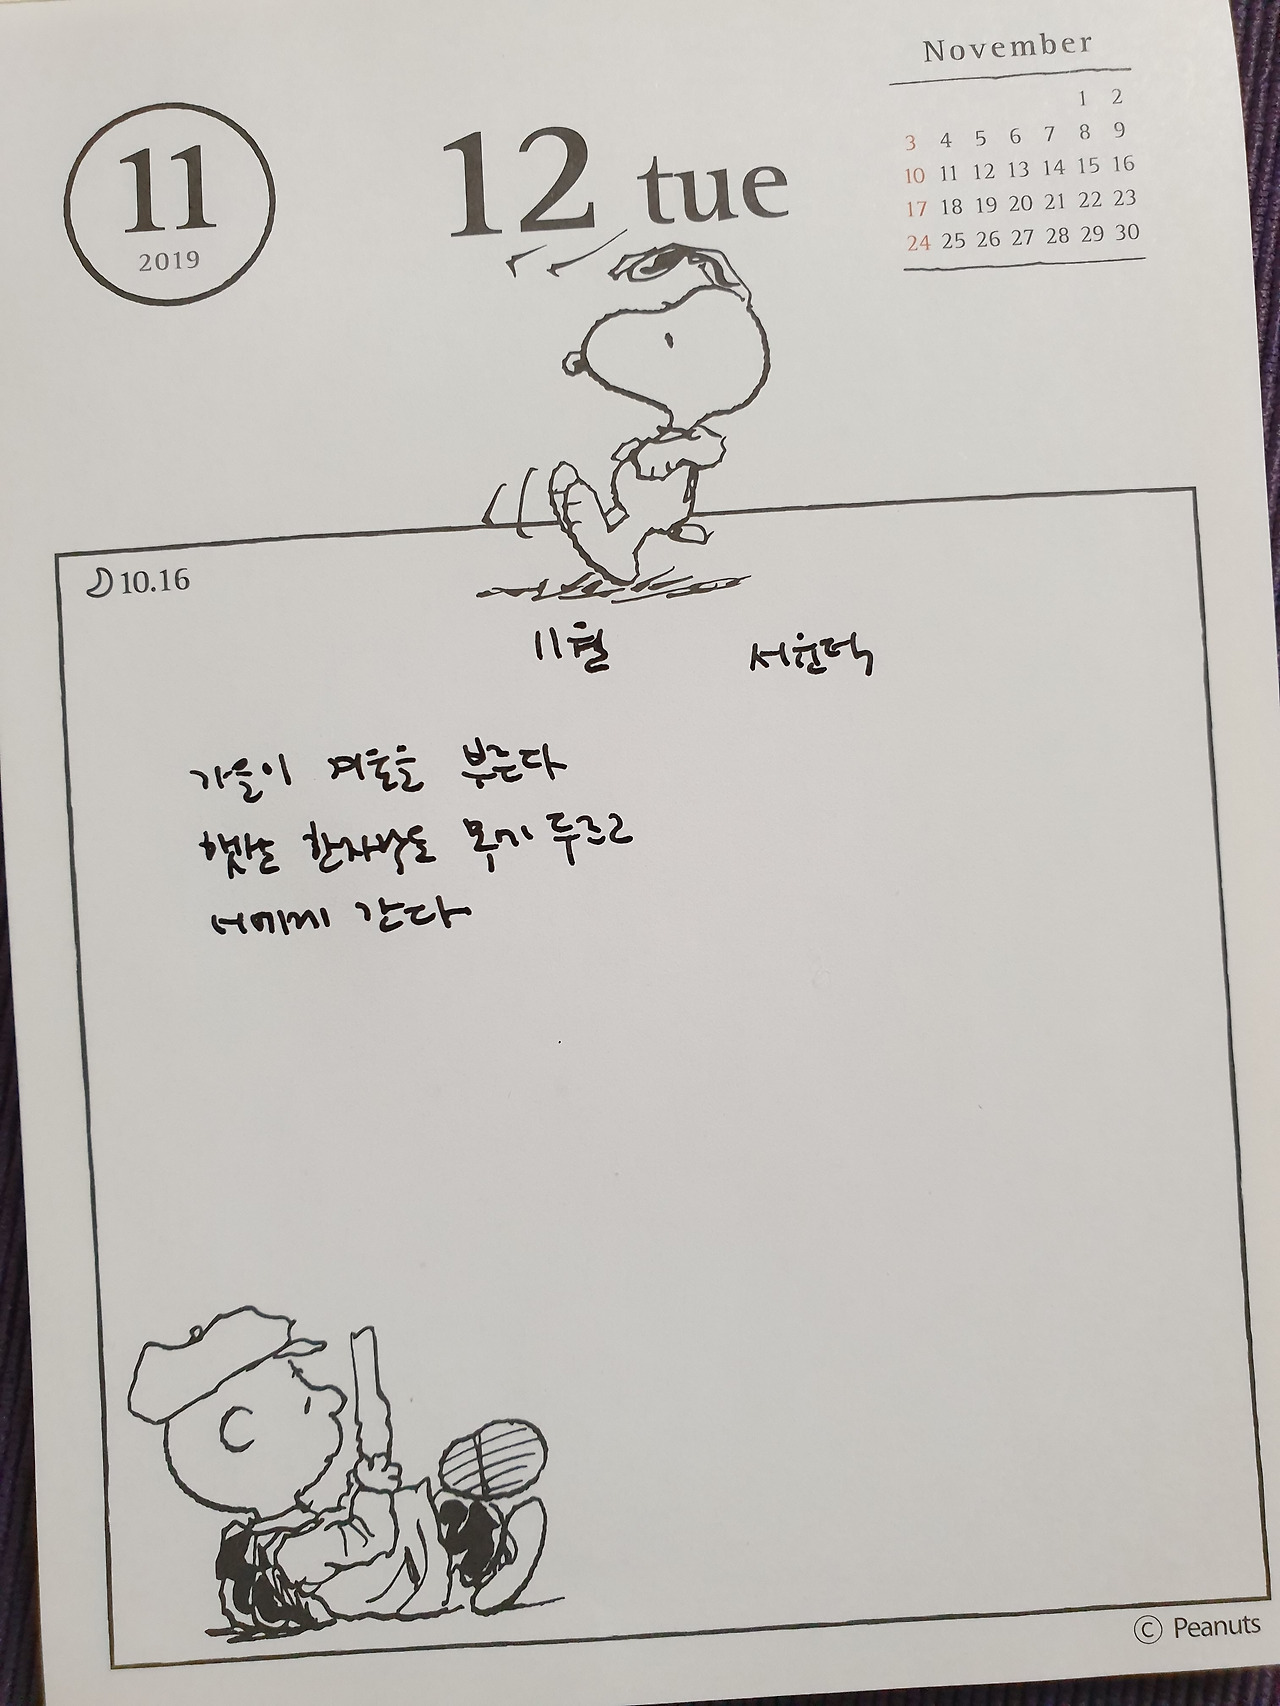 November
1 2
3 4 5 6 7 8 9
10 11 12 13 14 15 16
17 18 19 20 21 22 23
24 25 26 27 28 29 30
11
2019
12 tue
10.16
11월 서윤덕
가을이 겨울을 부른다
햇살 한자락도 목에 두르고
너에게 간다
© Peanuts